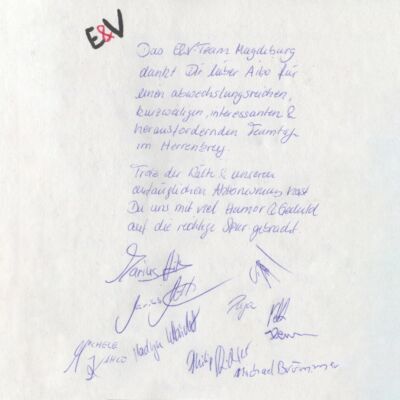 E&V
Das E&V Team Magdeburg
dankt Dir lieber Aibo für
einen abwechslungsreichen,
kurzweiligen, interessanten &
herausfordernden Teamtag
im Herrenkrug.
Trotz der Kälte & unseren
anfänglichen Ablehnung hast
Du uns mit viel Humor & Geduld
auf die richtige Spur gebracht.
Marius
Marius
Anja
Michele
Philip
Michael Brümmer